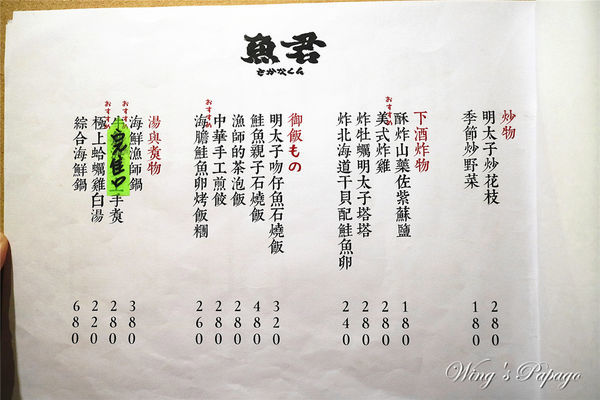 魚君
さかなくん
炒物
明太子炒花枝 280
季節炒野菜 180
下酒炸物
酥炸山藥佐紫蘇鹽 180
おすすめ
美式炸雞 280
炸牡蠣明太子塔塔 280
炸北海道干貝配鮭魚卵 240
御飯もの
明太子吻仔魚石燒飯 320
鮭魚親子石燒飯 480
漁師的茶泡飯 280
中華手工煎餃 280
おすすめ
海膽鮭魚卵烤飯糰 260
湯與煮物
海鮮漁師鍋 380
おすすめ
牛 手煮 280
おすすめ
極上蛤蠣雞白湯 220
綜合海鮮鍋 680
Wing's Papago